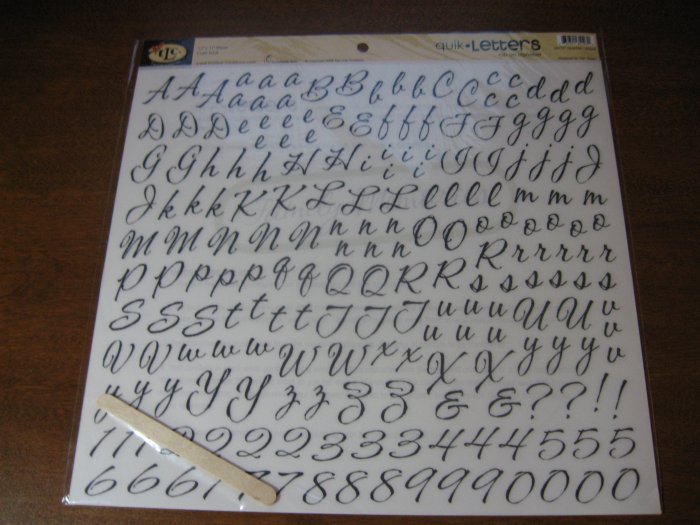 quik•Letters
A A A a a a a a a B B b b b b C C c c c c d d d
D D D e e e e e e E E f f f F F g g g g
G G h h h H H i i i i i I I j j j J
J k k k K K L L L L l l l l m m m
M M M N N N n n n n n n O O o o o o o o
P P p p p p q q Q Q R R R r r r r r s s s s s s
S S S t t t t T T T u u u u u u U U v v
V V w w w W W x x X X y y y y v
y y y Y Y z z Z Z & & ? ? ! !
1 1 1 2 2 2 2 3 3 3 3 4 4 4 4 5 5 5
6 6 6 7 7 7 7 8 8 8 8 9 9 9 0 0 0 0